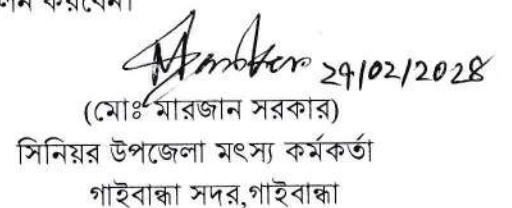 করবেন।
29/02/2028
(মোঃ মারজান সরকার)
সিনিয়র উপজেলা মৎস্য কর্মকর্তা
গাইবান্ধা সদর,গাইবান্ধা